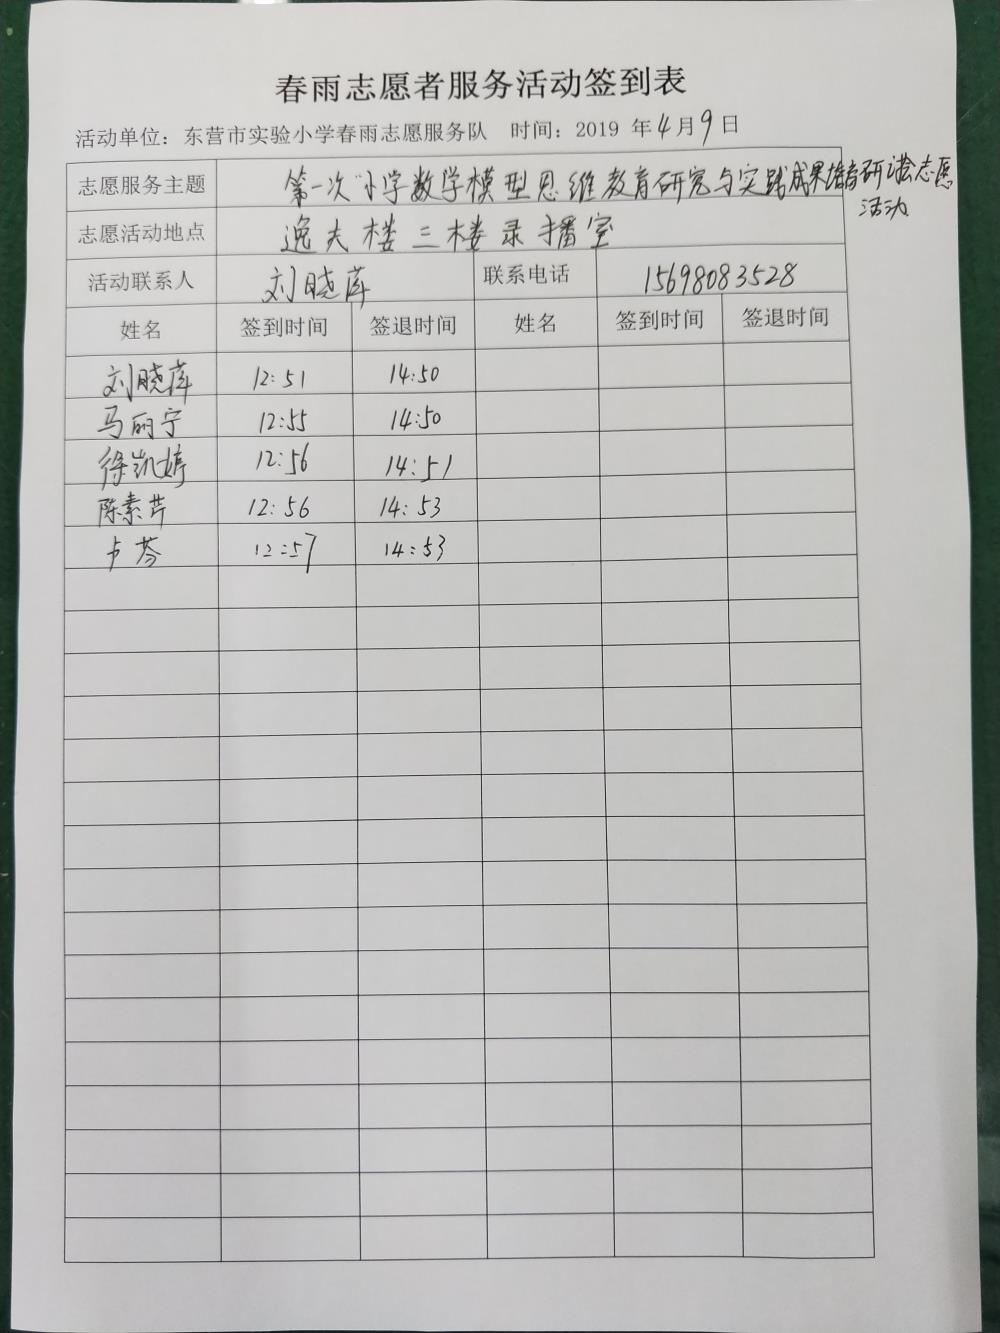 春雨志愿者服务活动签到表
活动单位：东营市实验小学春雨志愿服务队 时间：2019 年4月9日
志愿服务主题 第一次"小学数学模型思维教育研究与实践成果推广研讨会志愿
活动
志愿活动地点 逸夫楼三楼录播室
活动联系人 刘晓萍 联系电话 15698083528
姓名 签到时间 签退时间 姓名 签到时间 签退时间
刘晓萍 12:51 14:50
马丽宁 12:55 14:50
徐凯婷 12:56 14:51
陈素芹 12:56 14:53
卢芬 12:57 14:53